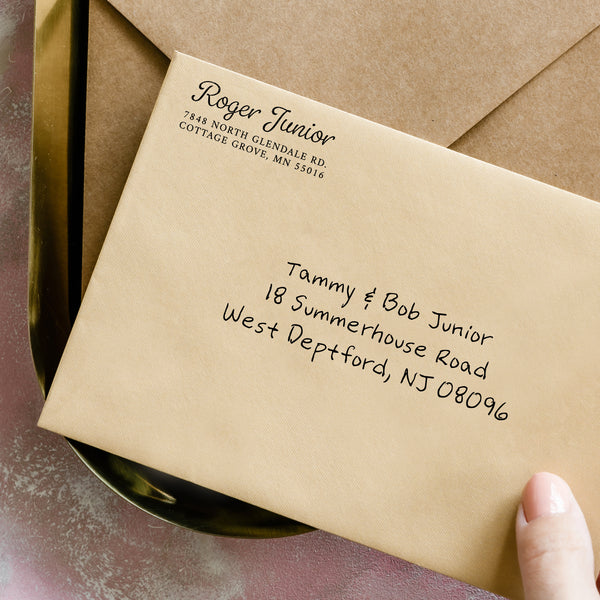 Roger Junior
7848 NORTH GLENDALE RD.
COTTAGE GROVE, MN 55016
Tammy & Bob Junior
18 Summerhouse Road
West Deptford, NJ 08096